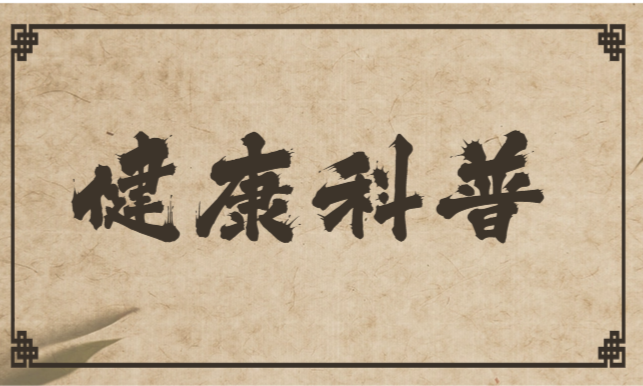 健康科普